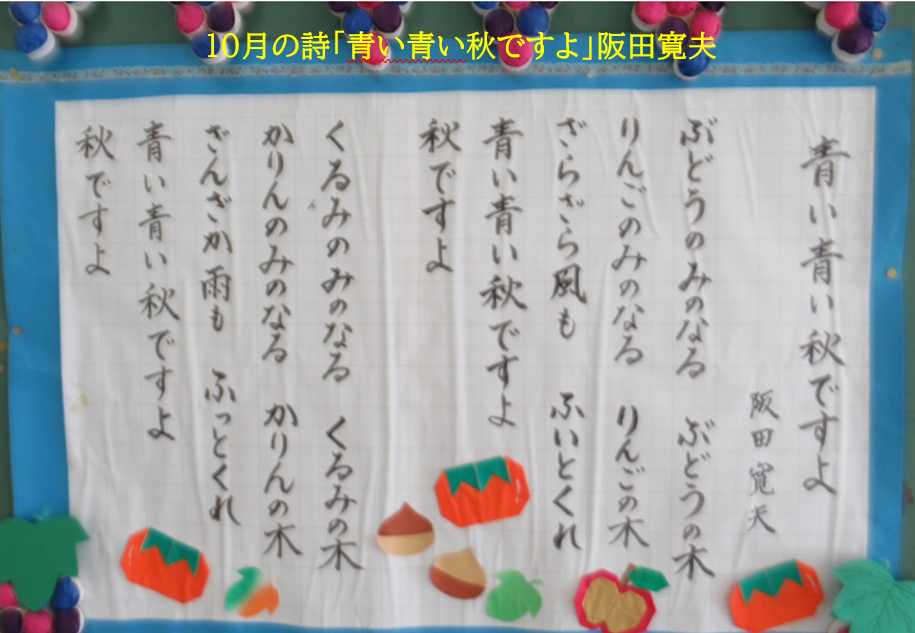 10月の詩「青い青い秋ですよ」阪田寛夫
青い青い秋ですよ
阪田寛夫
ぶどうのみのなる　ぶどうの木
りんごのみのなる　りんごの木
ざらざら風も　ふいとくれ
青い青い秋ですよ
秋ですよ
くるみのみのなる　くるみの木
かりんのみのなる　かりんの木
ざんざか雨も　ふっとくれ
青い青い秋ですよ
秋ですよ